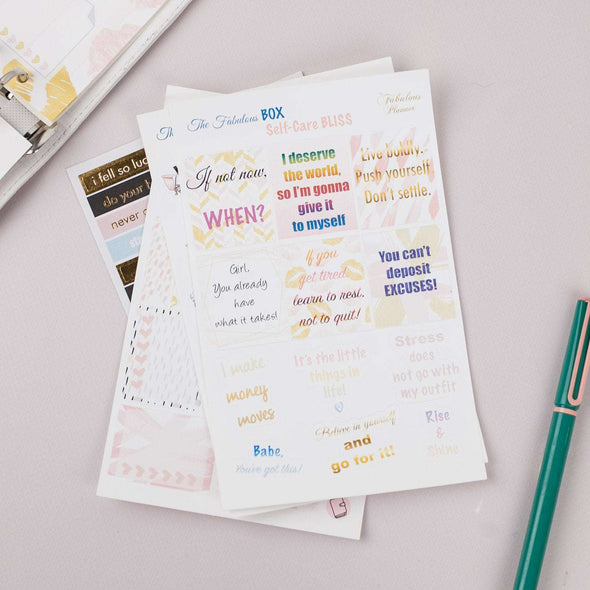 The Fabulous BOX
Self-Care BLISS
Fabulous
Planner
Th
i fell so luc
do your b
never g
st
If not now,
WHEN?
I deserve
the world,
so I'm gonna
give it
to myself
Live boldly.
Push yourself.
Don't settle.
Girl,
You already
have
what it takes!
If you
get tired,
learn to rest,
not to quit!
You can't
deposit
EXCUSES!
I make
money
moves
It's the little
things in
life!
Stress
does
not go with
my outfit
Babe,
You've got this!
Believe in yourself
and
go for it!
Rise
&
Shine